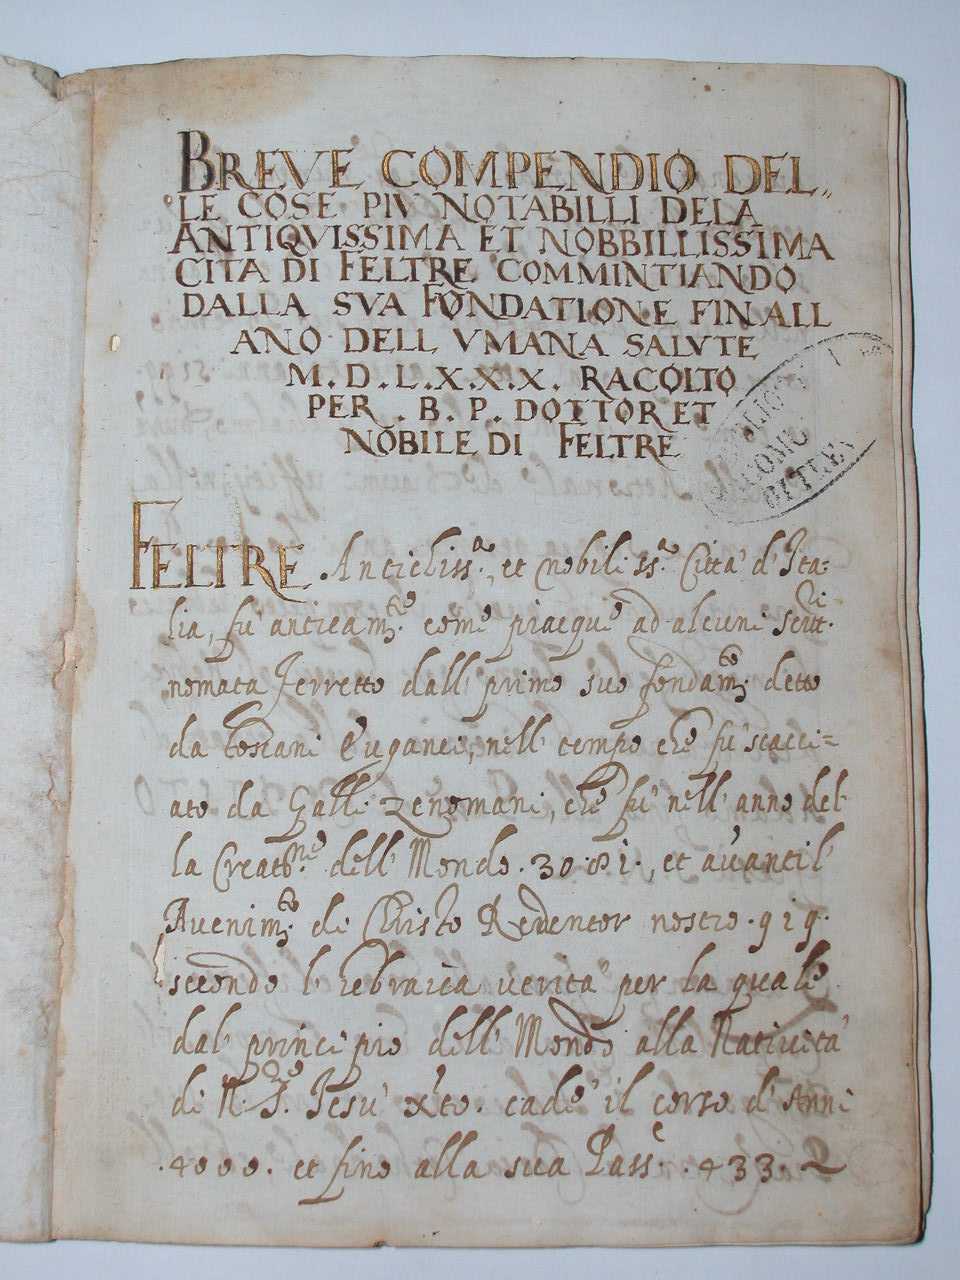 BREVE COMPENDIO DEL,,
LE COSE PIV NOTABILLI DELA
ANTIQVISSIMA ET NOBBILLISSIMA
CITA DI FELTRE COMMINTIANDO
DALLA SVA FONDATIONE FIN ALL
ANO DELL VMANA SALVTE
M. D. L. X. X. X. RACOLTO
PER . B. P. DOTTOR ET
NOBILE DI FELTRE
FELTRE Antichissa. et nobilissa. Città d'Ita=
lia, fu' anticamte. come piacque ad alcuni scritt.ri
nomata Ferretto dall' primo suo fondamto. detto
da toscani Euganei, nell' tempo che fu' scacci=
ato da Galli Zenomani, che fu' nell' anno del
la Creatne. dell' Mondo .3081., et auanti l'
Auenimto. di Christo Redentor nostro .919.
secondo l' hebraica uerita' per la quale
dal' principio dell' Mondo alla Natiuità
di N. Sre. Jesu' xto. cade' il corso d' Anni
.4000. et fino alla sua Pass.e .433.